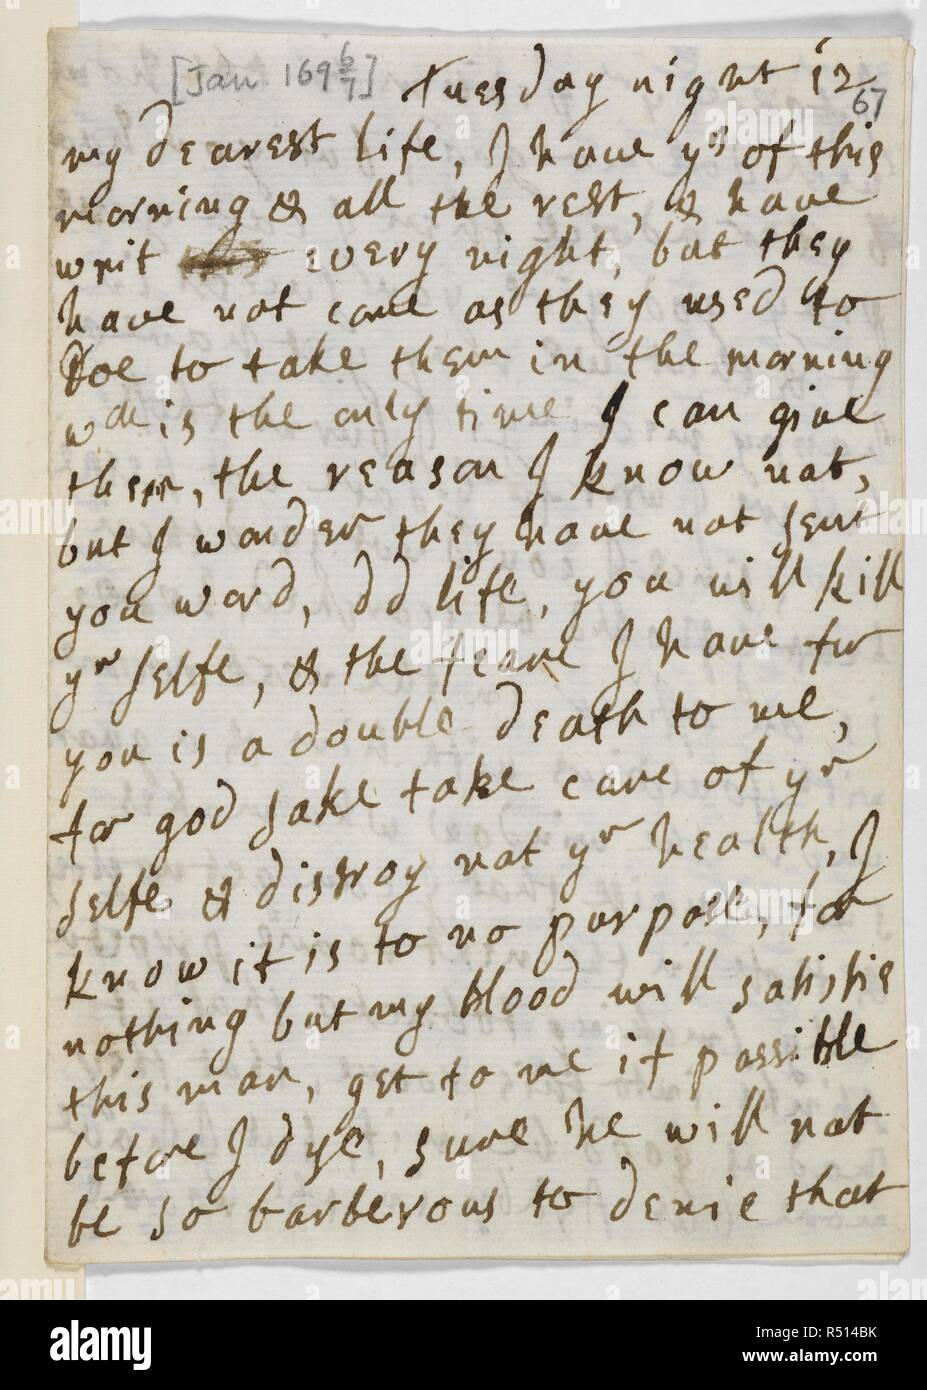 [Jan 169 6/7] Tuesday night 12
67
my dearest life, I have yrs of this
morning & all the rest, & have
writ every night, but they
have not come as they used to
doe to take them in the morning
wch is the only time I can give
them, the reason I know not,
but I wonder they have not sent
you word, dd life, you will kill
yr selfe, & the feare I have for
you is a double death to me,
for god sake take care of yr
selfe & distroy not yr health, I
know it is to no purpose, for
nothing but my blood will satisfie
this man, get to me if possible
before I dye, sure he will not
be so barberous to denie that
alamy
Image ID: R514BK
www.alamy.com